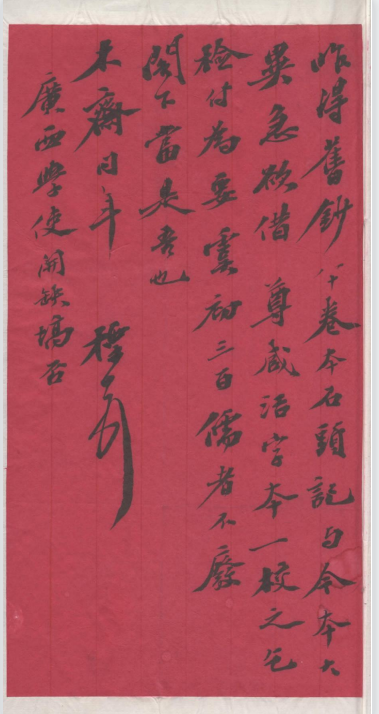 昨得舊鈔八十卷本石頭記與今本大
異急欲借 尊藏活字本一校之乞
檢付為要虞初三百儒者不廢
閣下當是吾也
木齋同年
廣西學使開缺塙否